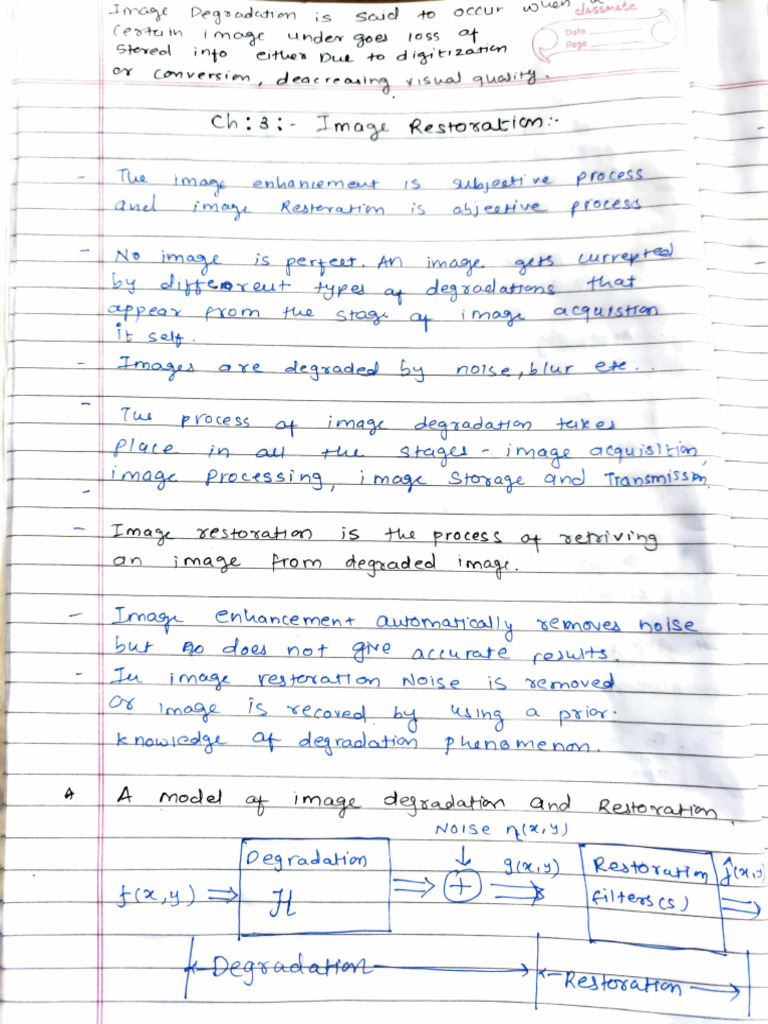 Image Degradation is said to occur when a
certain image under goes loss of
stored info either Due to digitization
or conversion, deacreasing visual quality.
classmate
Date
Page
Ch: 3:- Image Restoration:-
- The image enhancement is subjective process
and image Restoration is objective process
- No image is perfect. An image gets currepted
by different types of degradations that
appear from the stage of image acquistion
it self.
- Images are degraded by noise, blur etc..
- The process of image degradation takes
place in all the stages - image acquisition,
image processing, image storage and Transmission.
-
- Image restoration is the process of retriving
an image from degraded image.
- Image enhancement automatically removes noise
but does not give accurate results.
- In image restoration Noise is removed
or image is recoved by using a prior.
knowledge of degradation phenomenon.
A model of image degradation and Restoration.
Noise η(x,y)
Degradation
g(x,y)
Restoration
f̂(x,y)
f(x,y) ⇒
H
⇒ + ⇒
filters(s)
⇒
Degradation
Restoration